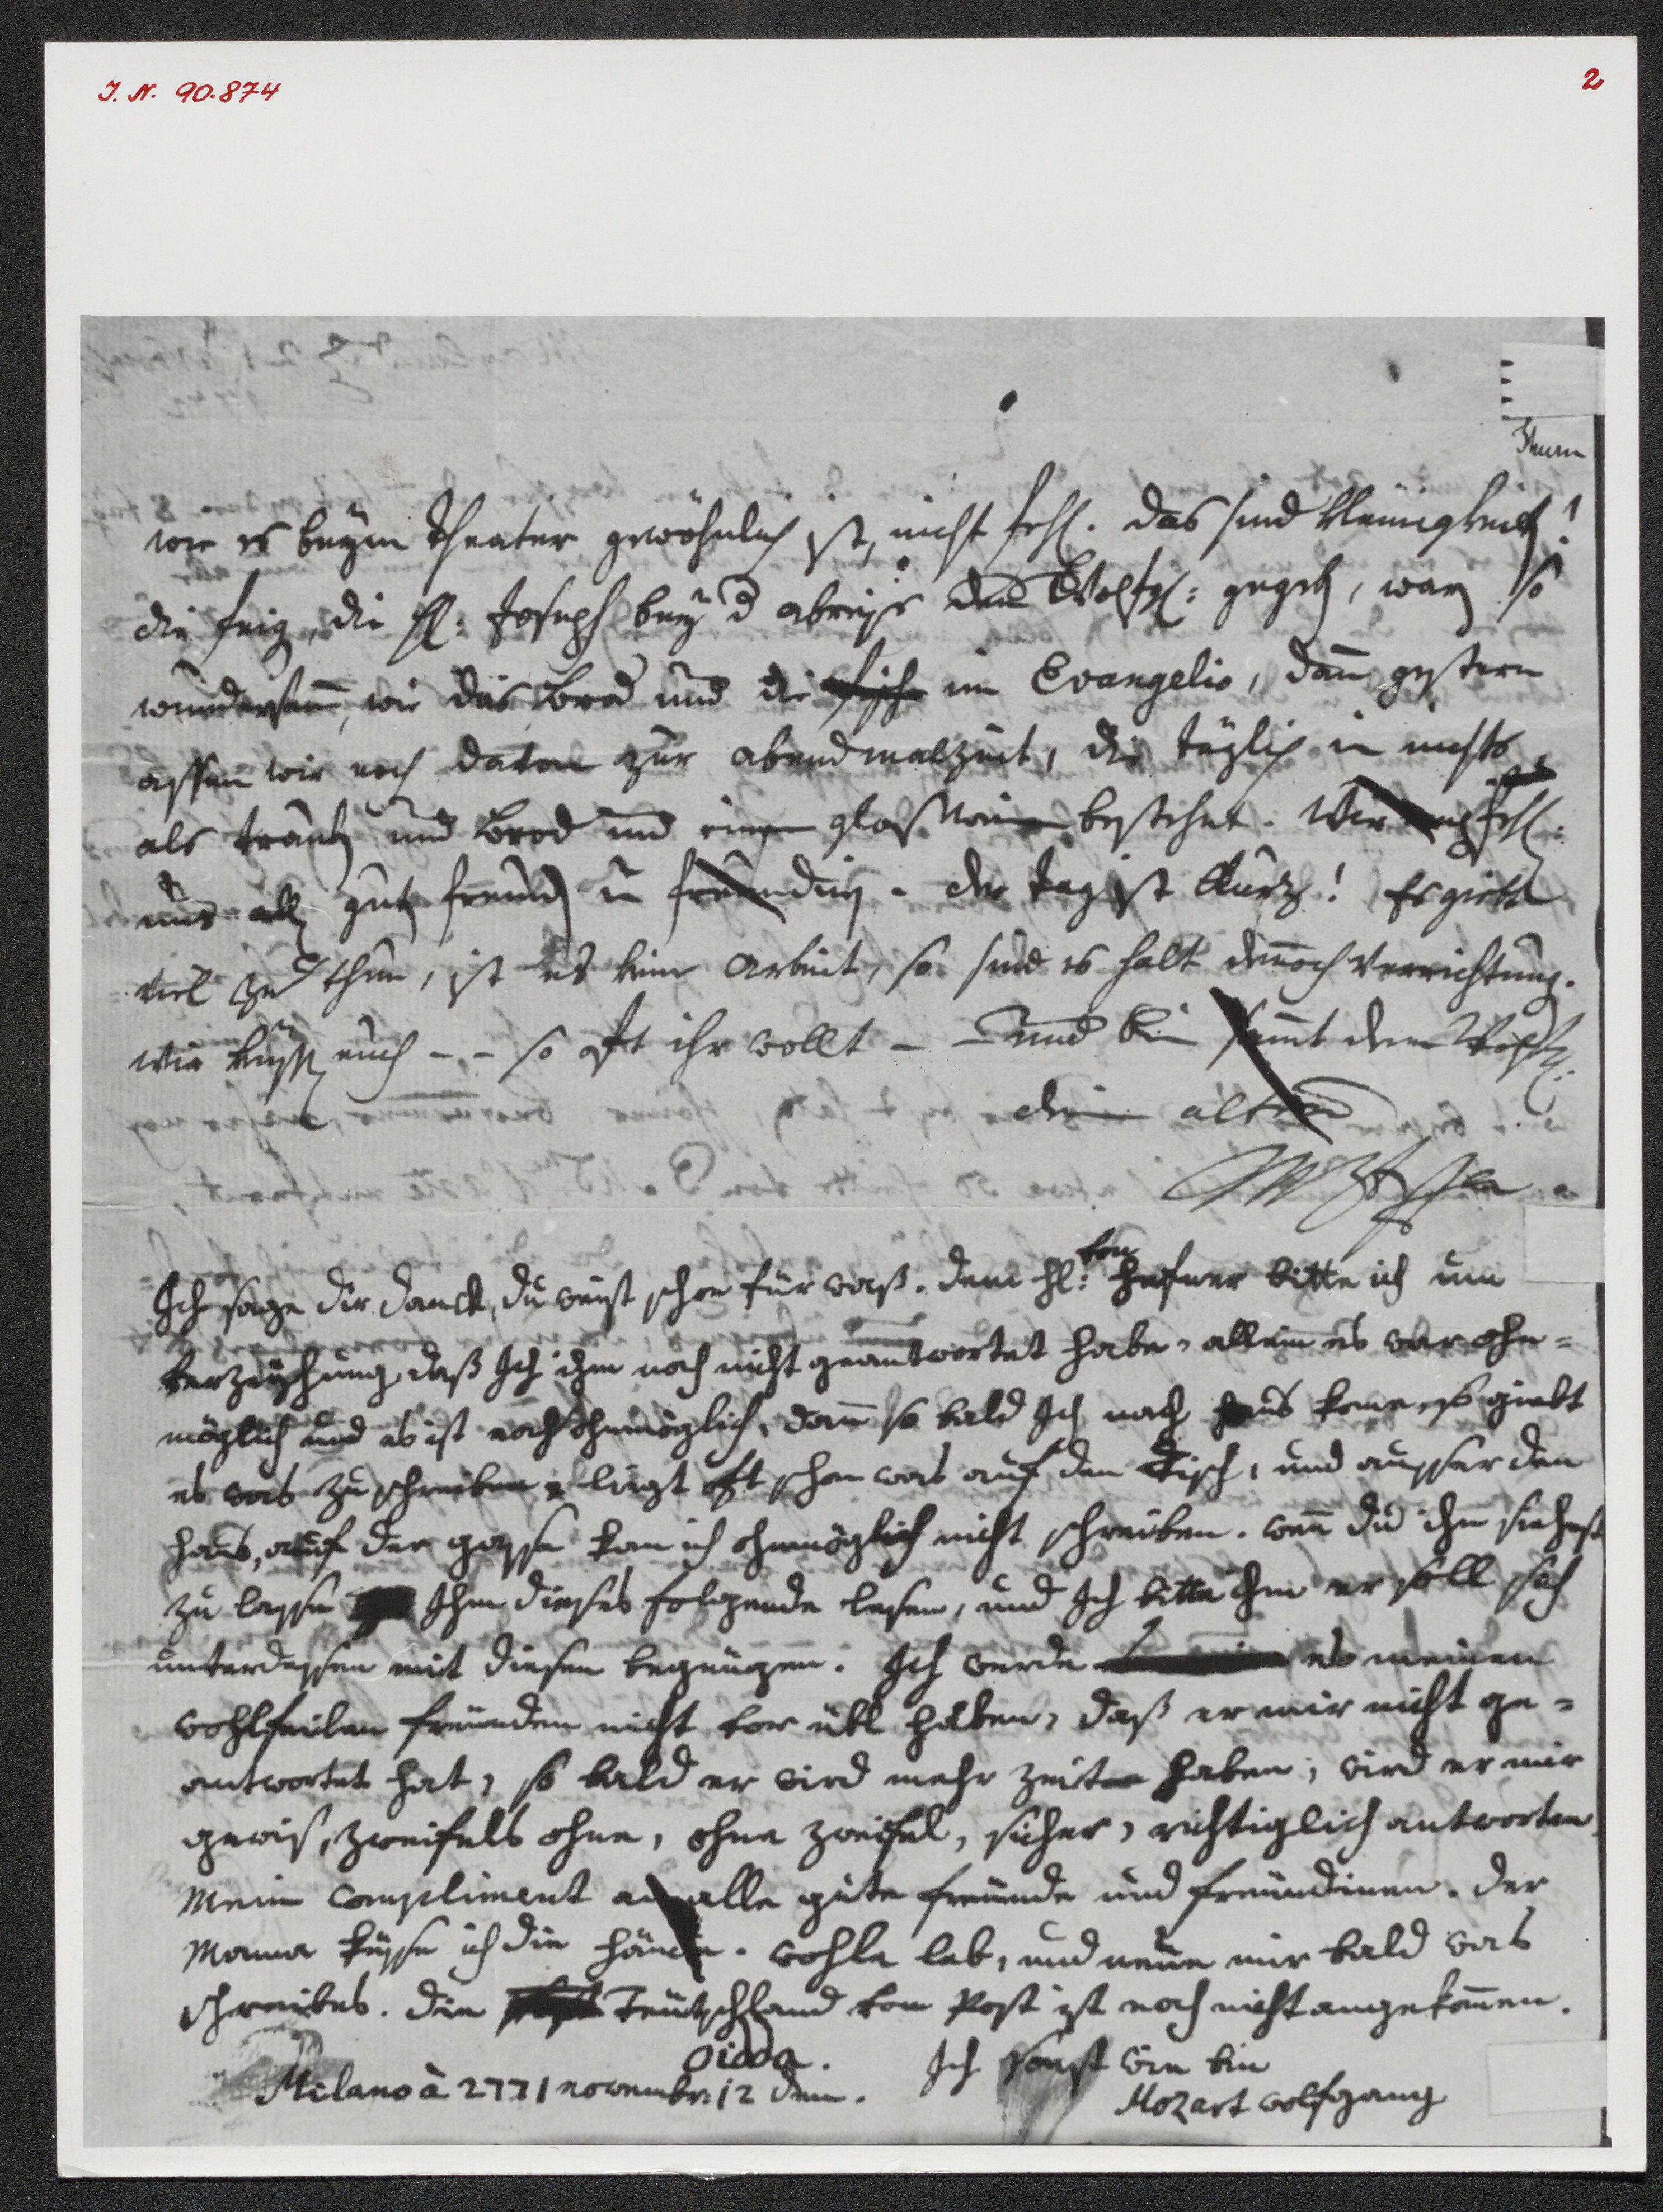 I. N. 90.874
2
Thurn
wie es beÿm Theater gewöhnlich ist, nicht fehlen. das sind kleinigkeiten!
die feigen, die H: Joseph beÿ d abreise dem Wolfg: gegeben, waren so
wundersam, wie das Brod und die fische im Evangelio, dann gestern
assen wir noch davon zur abendmalzeit, die täglich in nichts
als trauben und Brod und einem glas Wein bestehet. Wir empfehl:
uns allen guten freunden u freundinen. der tag ist Kurz! Es giebt
viel zu thun, ist es keine Arbeit, so sind es halt dennoch Verrichtungen.
wir küssen euch - - so oft ihr wollt - und bin sammt dem Wolfg:
dein alter
Mozart
Ich sage dir danck, du weist schon für was. dem hl: von
Hefner bitte ich um
verzeyhung, daß Ich ihm noch nicht geantwortet habe, allein es war ohn=
möglich und es ist noch ohnmöglich, dann so bald Ich nach haus kome, so giebt
es was zu schreiben, ligt oft schon was auf den Tisch, und ausser den
haus, auf der gasse kan ich ohnmöglich nicht schreiben. wenn du ihn siehest
zu lasse Ihm dieses folgende lesen, und Ich bitte ihm er soll sich
unterdessen mit diesen begnügen. Ich werde es meinen
wohlfeilen freünden nicht vor übl haben, daß er mir nicht ge=
antwortet hat, so bald er wird mehr zeit haben, wird er mir
gewis, zweifels ohne, ohne zweifel, sicher, richtiglich antworten.
Mein Compliment an alle gute freünde und freündinen. der
Mama küsse ich die hände. wohle leb, und neüe mir bald was
schreibes. die Teütschland vom Post ist noch nicht angekomen.
oidda. Ich sonst wie bin
Milano à 2771 novembr: 12 den.
Mozart wolfgang